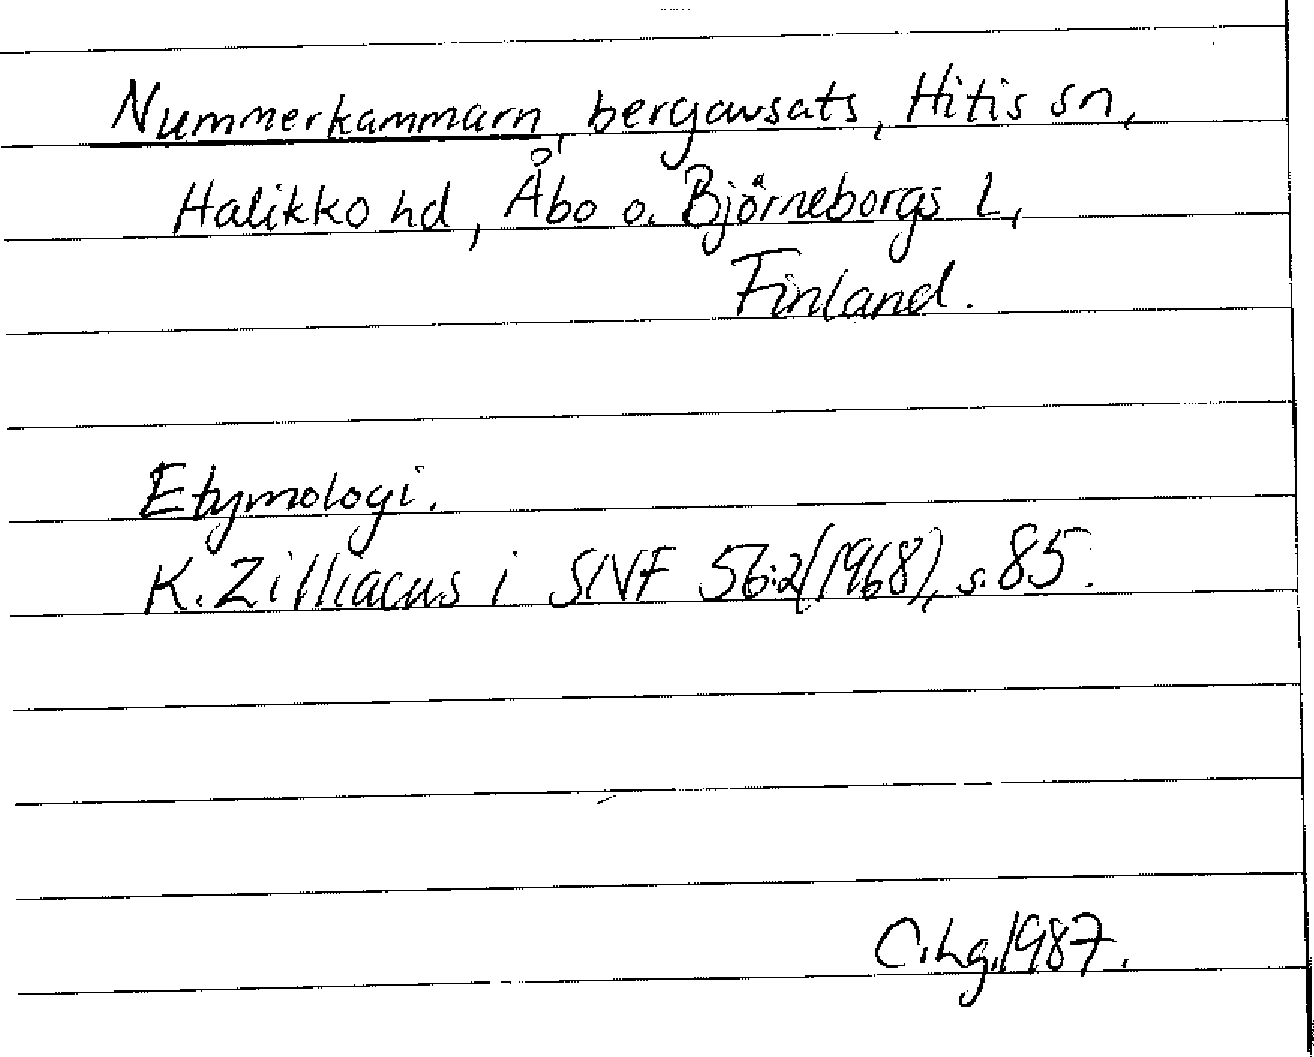 Nummerkammarn, bergavsats, Hitis sn,
Halikko hd, Åbo o. Björneborgs L,
Finland.
Etymologi.
K. Zilliacus i SNF 56:2(1968), s. 85.
C.Lg.1987.